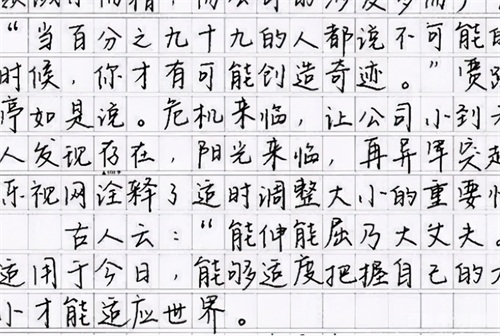 “当百分之九十九的人都说不可能的
时候，你才有可能创造奇迹。”贾跃
亭如是说。危机来临，让公司小到
人发现存在，阳光来临，再异军突起
乐视网诠释了适时调整大小的重要性
古人云：“能伸能屈乃大丈夫。
运用于今日，能够适度把握自己的大
小才能适应世界。